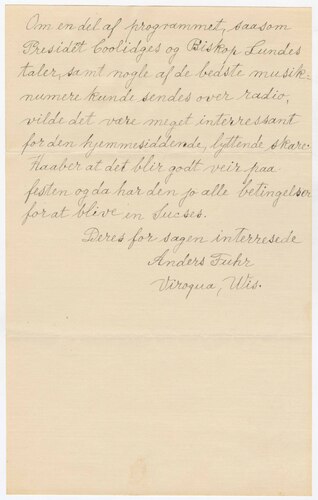 Om en del af programmet, saasom
Presidét Coolidges og Biskop Lundes
taler, samt nogle af de bedste musik-
numere kunde sendes over radio,
vilde det være meget interressant
for den hjemmesiddende, lyttende skare.
Haaber at det blir godt veir paa
festen og da har den jo alle betingelser
for at blive en Sucses.
Deres for sagen interresede
Anders Fuhr
Viroqua, Wis.